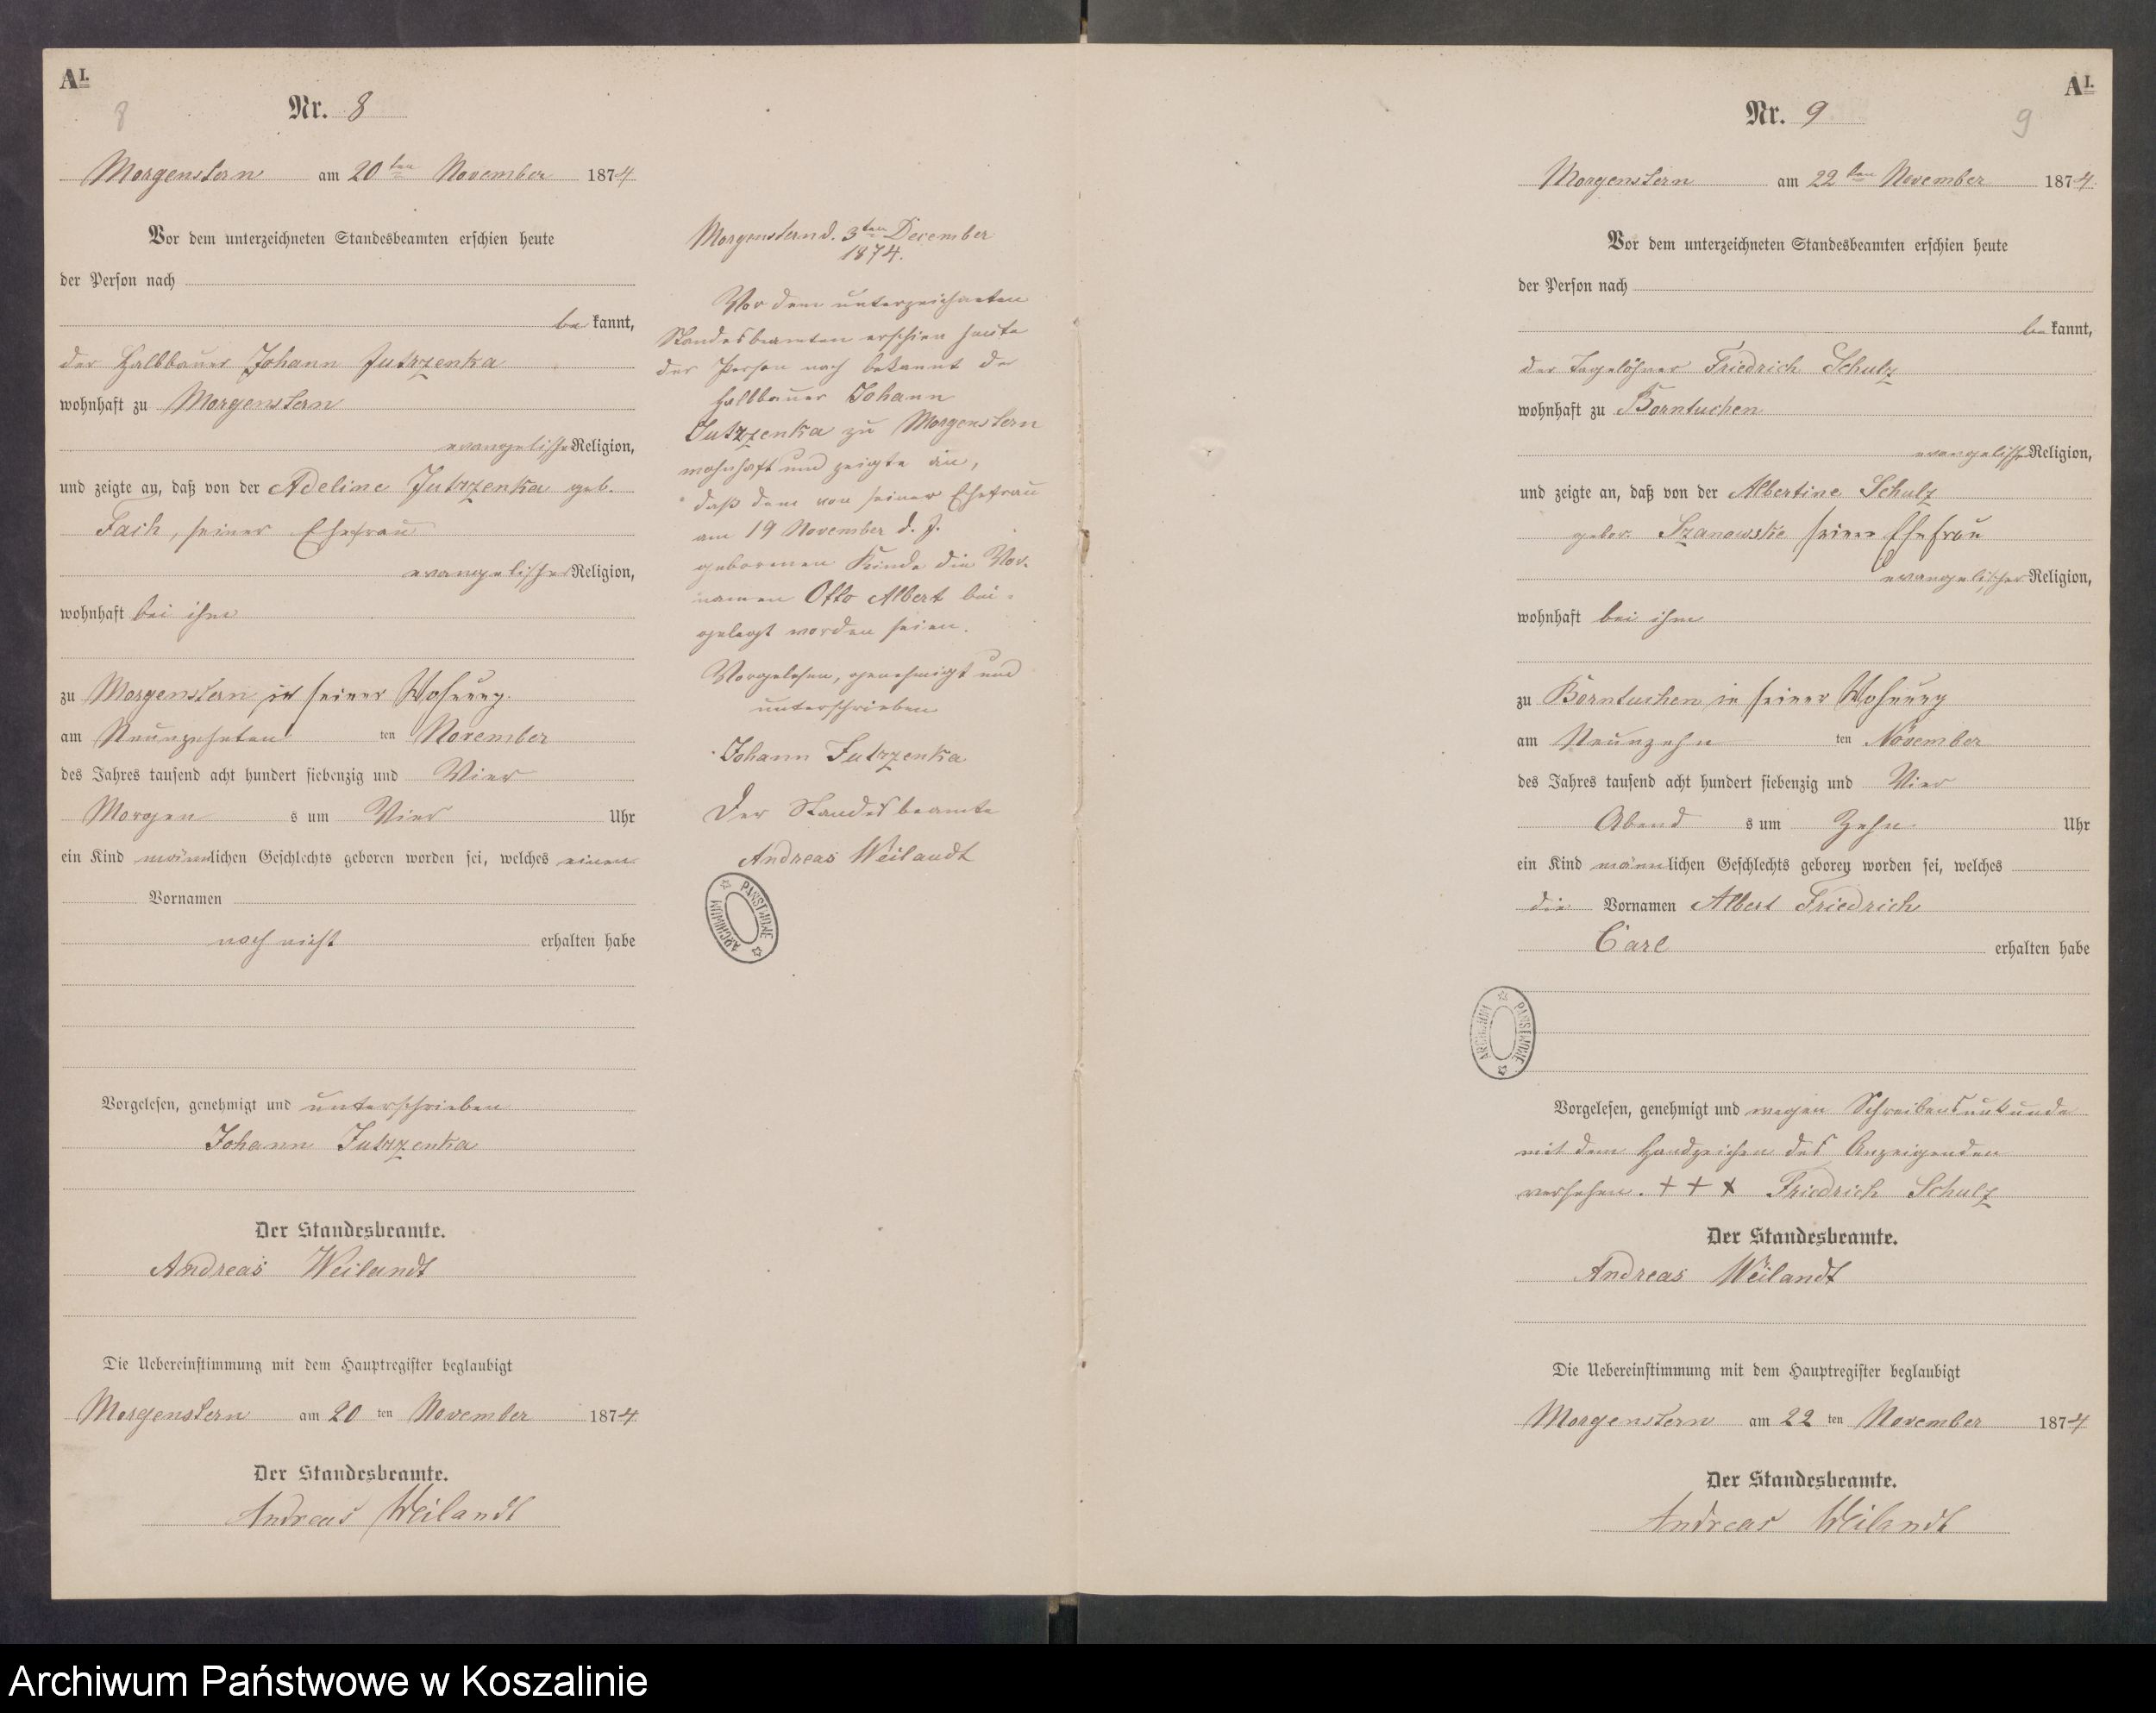 AI.
8
Nr. 8
Morgenstern am 20ten November 1874
Vor dem unterzeichneten Standesbeamten erschien heute
der Person nach
bekannt,
der Halbbauer Johann Jutrzenka
wohnhaft zu Morgenstern
evangelischer Religion,
und zeigte an, daß von der Adeline Jutrzenka geb.
Fach, seiner Ehefrau
evangelischer Religion,
wohnhaft bei ihm
zu Morgenstern in seiner Wohnung
am Neunzehnten ten November
des Jahres tausend acht hundert siebenzig und Vier
Morgen s um Vier Uhr
ein Kind männlichen Geschlechts geboren worden sei, welches einen
Vornamen
noch nicht erhalten habe
Vorgelesen, genehmigt und unterschrieben
Johann Jutrzenka
Der Standesbeamte.
Andreas Weilandt
Die Uebereinstimmung mit dem Hauptregister beglaubigt
Morgenstern am 20 ten November 1874
Der Standesbeamte.
Andreas Weilandt
Morgenstern d. 3ten December
1874.
Vor dem unterzeichneten
Standesbeamten erschien heute
der Person nach bekannt de
Halbbauer Johann
Jutrzenka zu Morgenstern
wohnhaft und zeigte an,
daß dem von seiner Ehefrau
am 19 November d. J.
geborenen Kinde die Vor-
namen Otto Albert bei-
gelegt worden seien.
Vorgelesen, genehmigt und
unterschrieben
Johann Jutrzenka
Der Standesbeamte
Andreas Weilandt
ARCHIWUM PAŃSTWOWE
AI.
Nr. 9
9
Morgenstern am 22ten November 1874.
Vor dem unterzeichneten Standesbeamten erschien heute
der Person nach
bekannt,
der Tagelöhner Friedrich Schulz
wohnhaft zu Borntuchen
evangelisch Religion,
und zeigte an, daß von der Albertine Schulz
gebor. Szanowske seiner Ehefrau
evangelischer Religion,
wohnhaft bei ihm
zu Borntuchen in seiner Wohnung
am Neunzehn ten November
des Jahres tausend acht hundert siebenzig und Vier
Abend s um Zehn Uhr
ein Kind männlichen Geschlechts geboren worden sei, welches
die Vornamen Albert Friedrich
Carl erhalten habe
ARCHIWUM PAŃSTWOWE
Vorgelesen, genehmigt und wegen Schreibensunkunde
mit dem Handzeichen des Anzeigenden
versehen. + + + Friedrich Schulz
Der Standesbeamte.
Andreas Weilandt
Die Uebereinstimmung mit dem Hauptregister beglaubigt
Morgenstern am 22 ten November 1874
Der Standesbeamte.
Andreas Weilandt
Archiwum Państwowe w Koszalinie